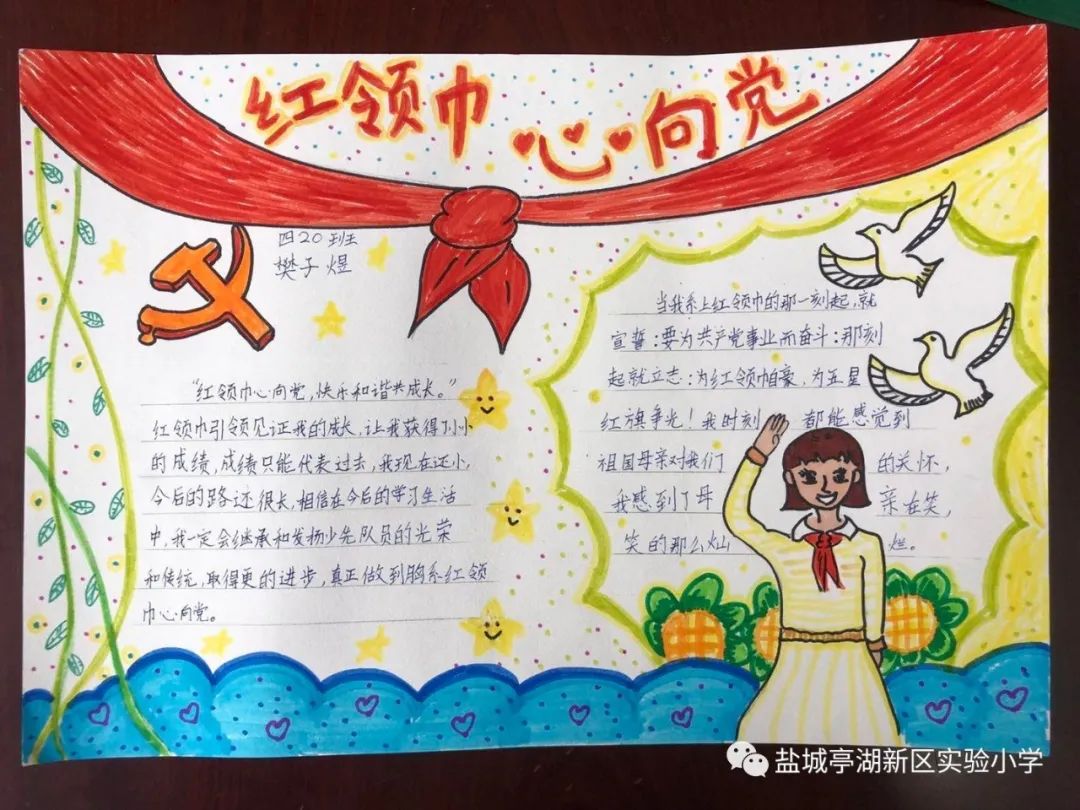 红领巾 心向党
四20班
樊子煜
“红领巾心向党，快乐和谐共成长。”
红领巾引领见证我的成长，让我获得了小小
的成绩，成绩只能代表过去，我现在还小，
今后的路还很长，相信在今后的学习生活
中，我一定会继承和发扬少先队员的光荣
和传统，取得更的进步，真正做到胸系红领
巾心向党。
当我系上红领巾的那一刻起，就
宣誓：要为共产党事业而奋斗：那刻
起就立志：为红领巾自豪，为五星
红旗争光！我时刻都能感觉到
祖国母亲对我们的关怀，
我感到了母亲在笑，
笑的那么灿烂。
盐城亭湖新区实验小学